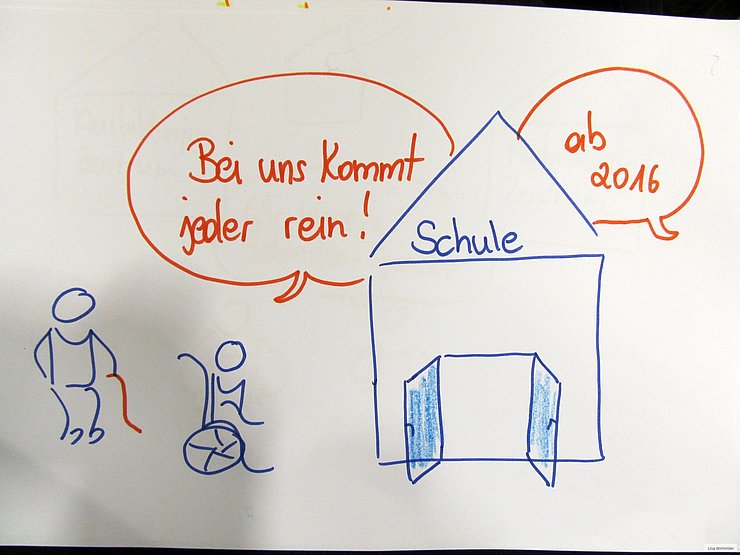 Bei uns kommt
jeder rein!
ab
2016
Schule
Lisa Wimmler